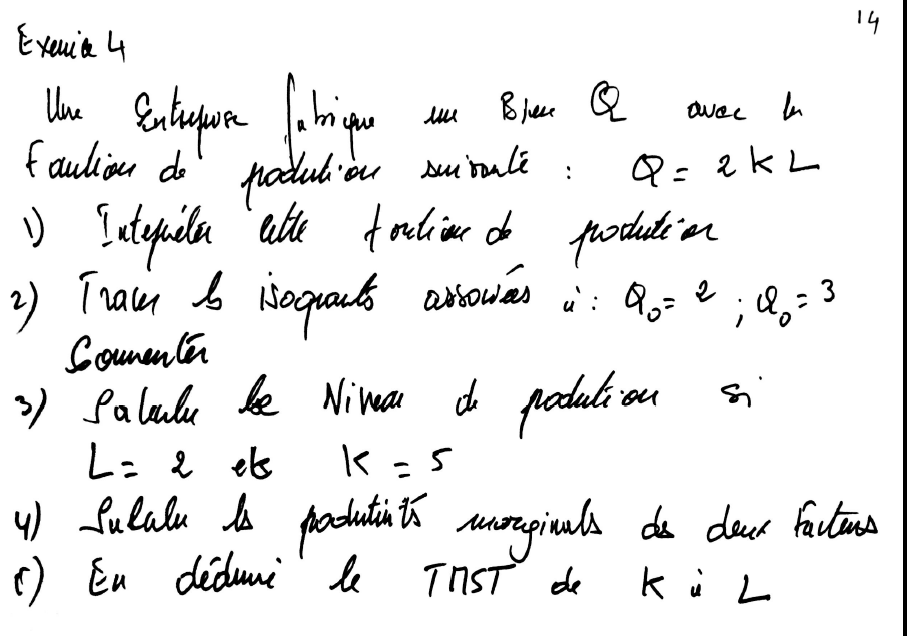 14
Exercice 4
Une Entreprise fabrique un Bien Q avec la
Fonction de production suivante : Q = 2 K L
1) Interpréter cette fonction de production
2) Tracer les isoquants associées à : Q₀ = 2 ; Q₀ = 3
Commenter
3) Calculer le Niveau de production si
L = 2 et K = 5
4) Calculer les productivités marginales des deux facteurs
5) En déduire le TMST de K à L